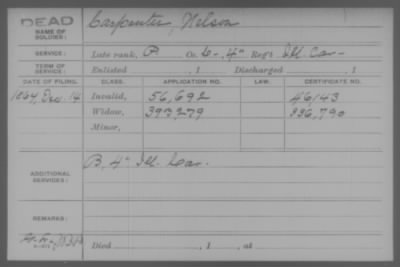 DEAD Carpenter, Nelson
NAME OF SOLDIER:
SERVICE: Late rank, P Co. C-, 4" Reg't Ill. Cav-
TERM OF SERVICE: Enlisted , 1 Discharged , 1
DATE OF FILING. CLASS. APPLICATION NO. LAW. CERTIFICATE NO.
1864, Dec. 14 Invalid, 56,692 46143
Widow, 393279
Minor,
ADDITIONAL SERVICES: B, 4" Ill. Cav.
REMARKS:
Died , 1 , at